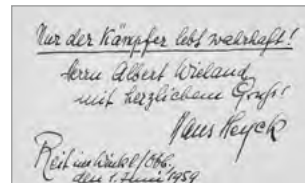 Nur der Kämpfer lebt wahrhaft!
Herrn Albert Wieland
mit herzlichem Gruß!
Hans Heyck
Reit im Winkl/Obb.
den 1. Juni 1959